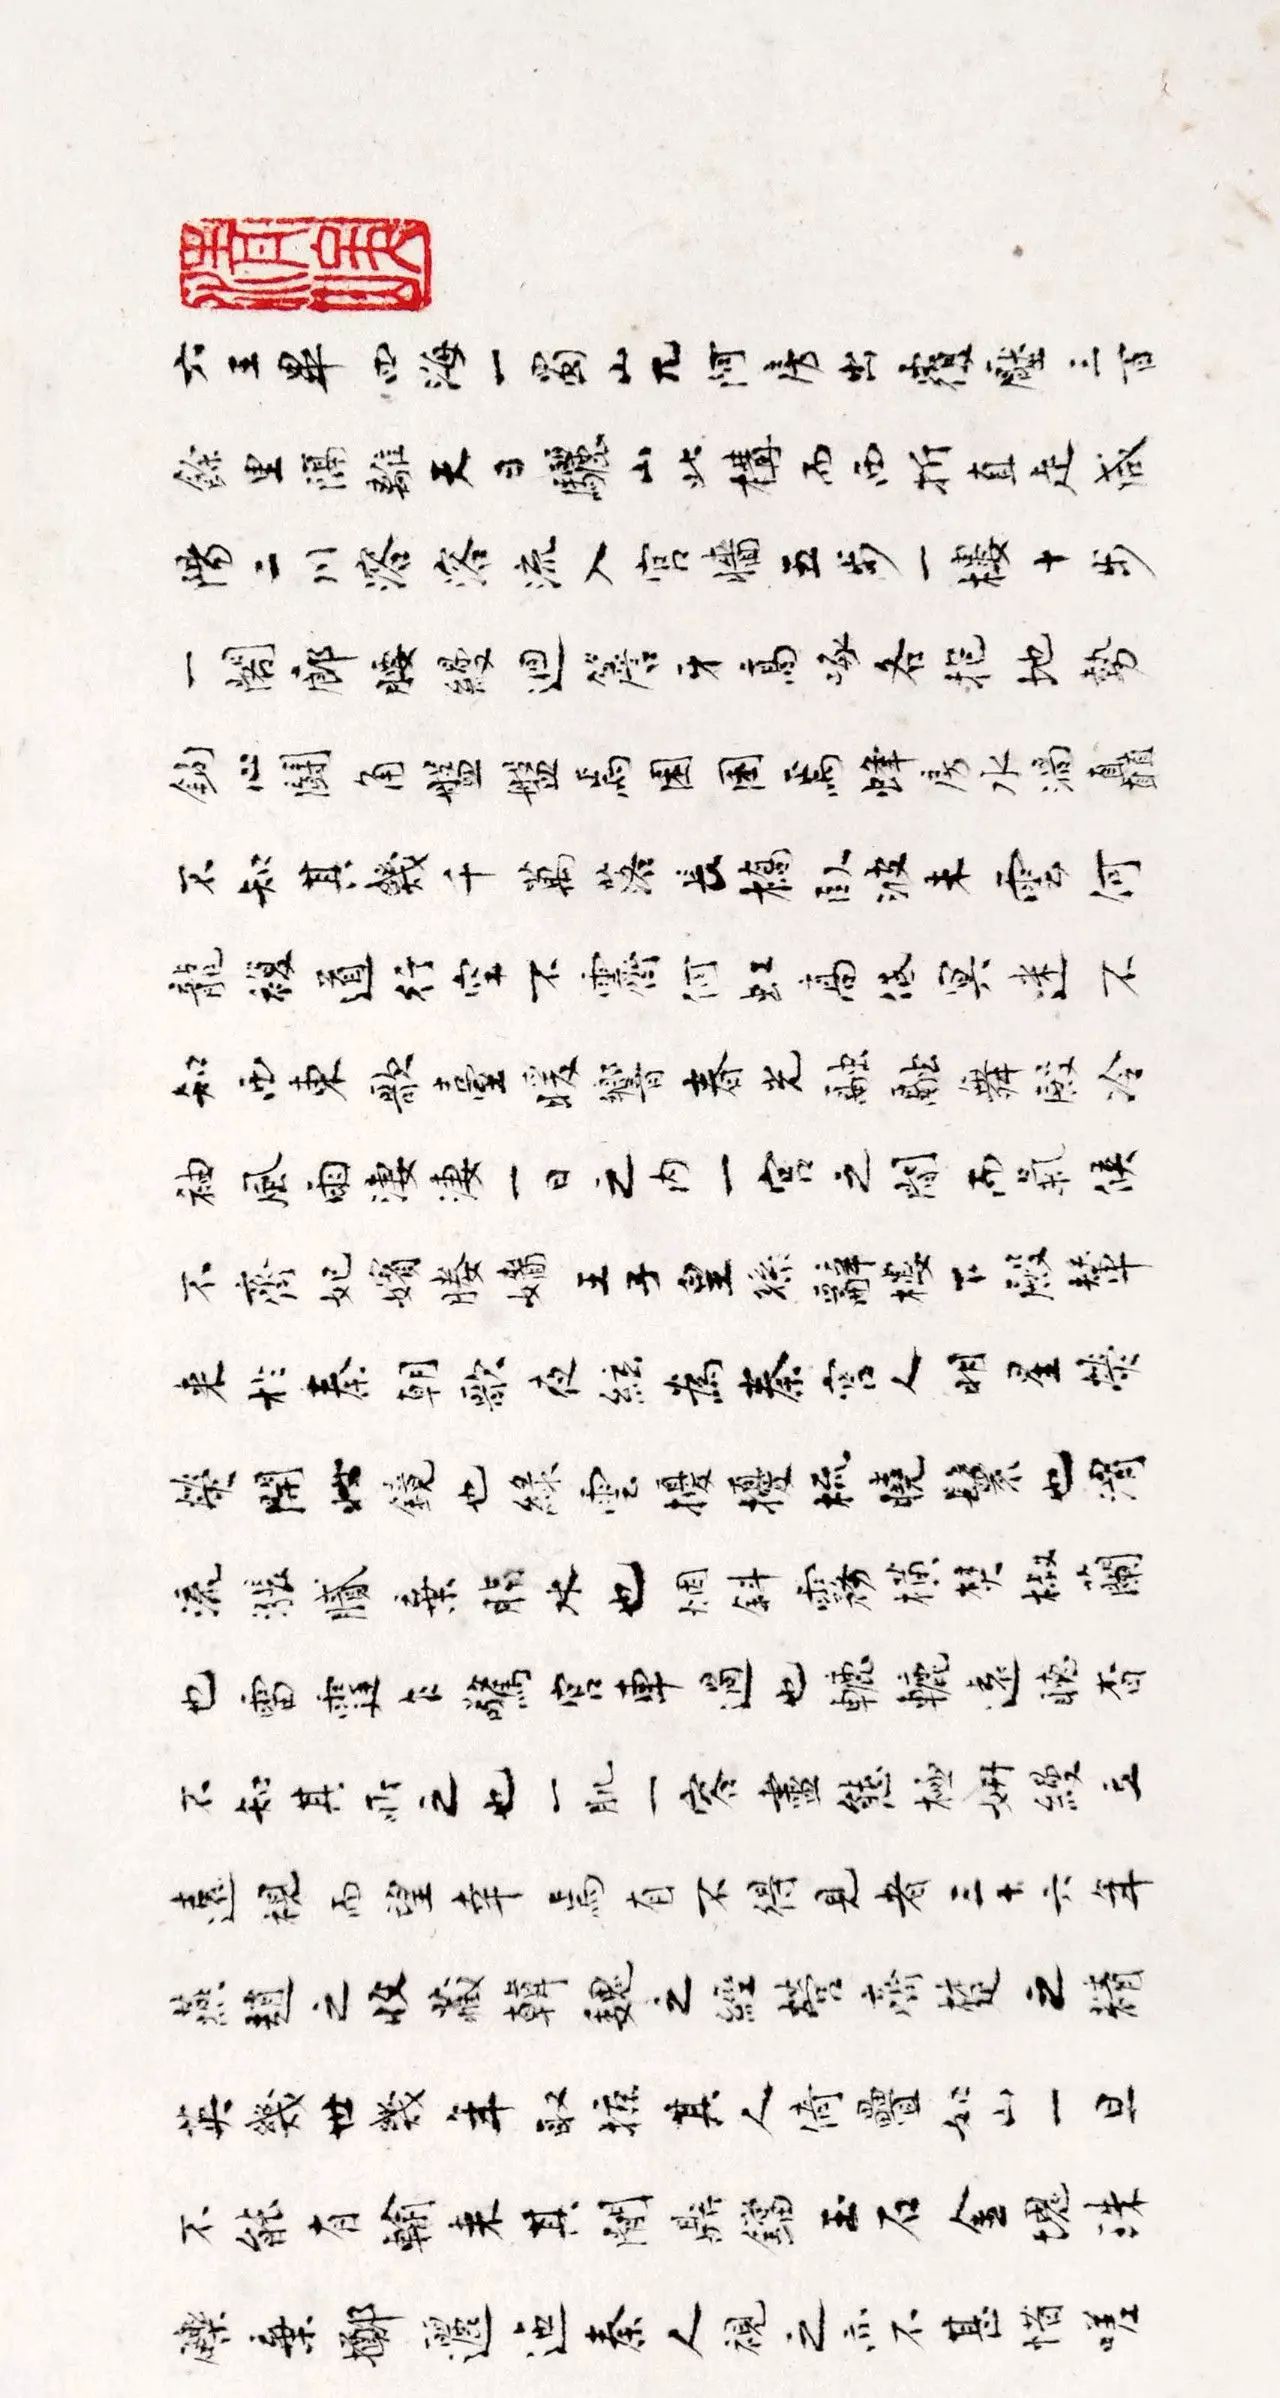 六王畢四海一蜀山兀阿房出覆壓三百
餘里隔離天日驪山北構而西折直走咸
陽二川溶溶流入宮牆五步一樓十步
一閣廊腰縵迴簷牙高啄各抱地勢
鈎心鬬角盤盤焉囷囷焉蜂房水渦矗
不知其幾千萬落長橋臥波未雲何
龍複道行空不霽何虹高低冥迷不
知西東歌臺暖響春光融融舞殿冷
袖風雨淒淒一日之內一宮之間而氣候
不齊妃嬪媵嬙王子皇孫辭樓下殿輦
來於秦朝歌夜絃為秦宮人明星熒
熒開妝鏡也綠雲擾擾梳曉鬟也渭
流漲膩棄脂水也烟斜霧橫焚椒蘭
也雷霆乍驚宮車過也轆轆遠聽杳
不知其所之也一肌一容盡態極妍縵立
遠視而望幸焉有不得見者三十六年
燕趙之收藏韓魏之經營齊楚之精
英幾世幾年取掠其人倚疊如山一旦
不能有輸來其間鼎鐺玉石金塊珠
礫棄擲邐迤秦人視之亦不甚惜嗟